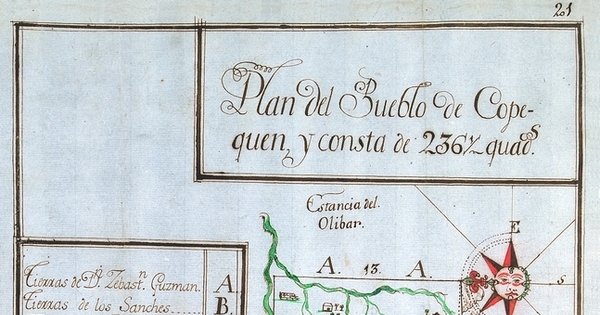 21
Plan del Pueblo de Cope-
quen, y consta de 236½ quads.
Estancia del
Olibar.
E
S
A. 13. A.
Tierras de Dn. Zebastn. Guzman. A.
Tierras de los Sanches...... B.